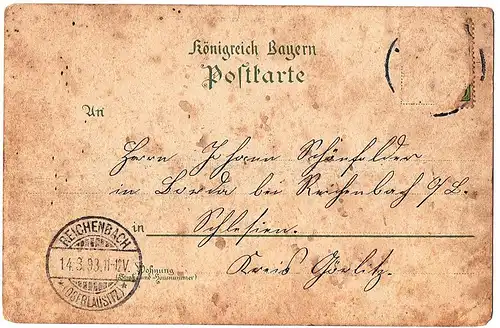 Königreich Bayern
Postkarte
An
Herrn Johann Schönfelder
in Borda bei Reichenbach O/L.
in Schlesien.
Kreis Görlitz.
Wohnung
(Straße und Hausnummer)
REICHENBACH
14.3.98.11-12V.
* (OBERLAUSITZ) *